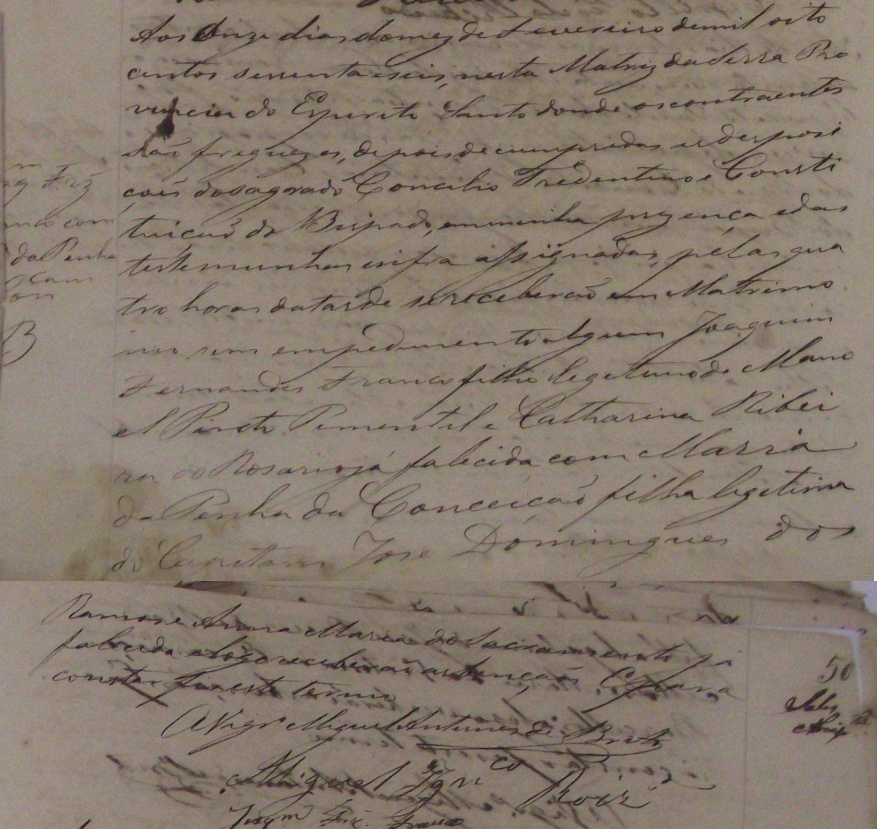 Aos Onze dias do mez de Fevereiro de mil oito
centos sessenta e seis, nesta Matriz da Serra Pro
vincia do Espirito Santo donde os contraentes
são freguezes, depois de cumpridas as desposi
coēs do sagrado Concilio Tredentino e Consti
tuicaõ do Bispado, em minha prezença e das
testemunhas infra assignadas, pelas qua
tro horas da tarde se receberaõ em Matrimo
nio sem empedimento algum Joaquim
Fernandes Franco filho legetimo de Mano
el Pinto Pimentel e Catharina Ribei
ra do Rosario já falecida com Maria
da Penha da Conceicaõ filha legitima
do Capitam Jose Domingues dos
Ramos e Anna Maria do Sacramento ja
falecida e logo receberaõ as bençaõs E para
constar fiz este termo
O Vigrº Miguel Antunes de Brito
Miguel Ignco Roiz
Joaqm Frz. Franco
Frz
com
da Penha
Cam
B
50